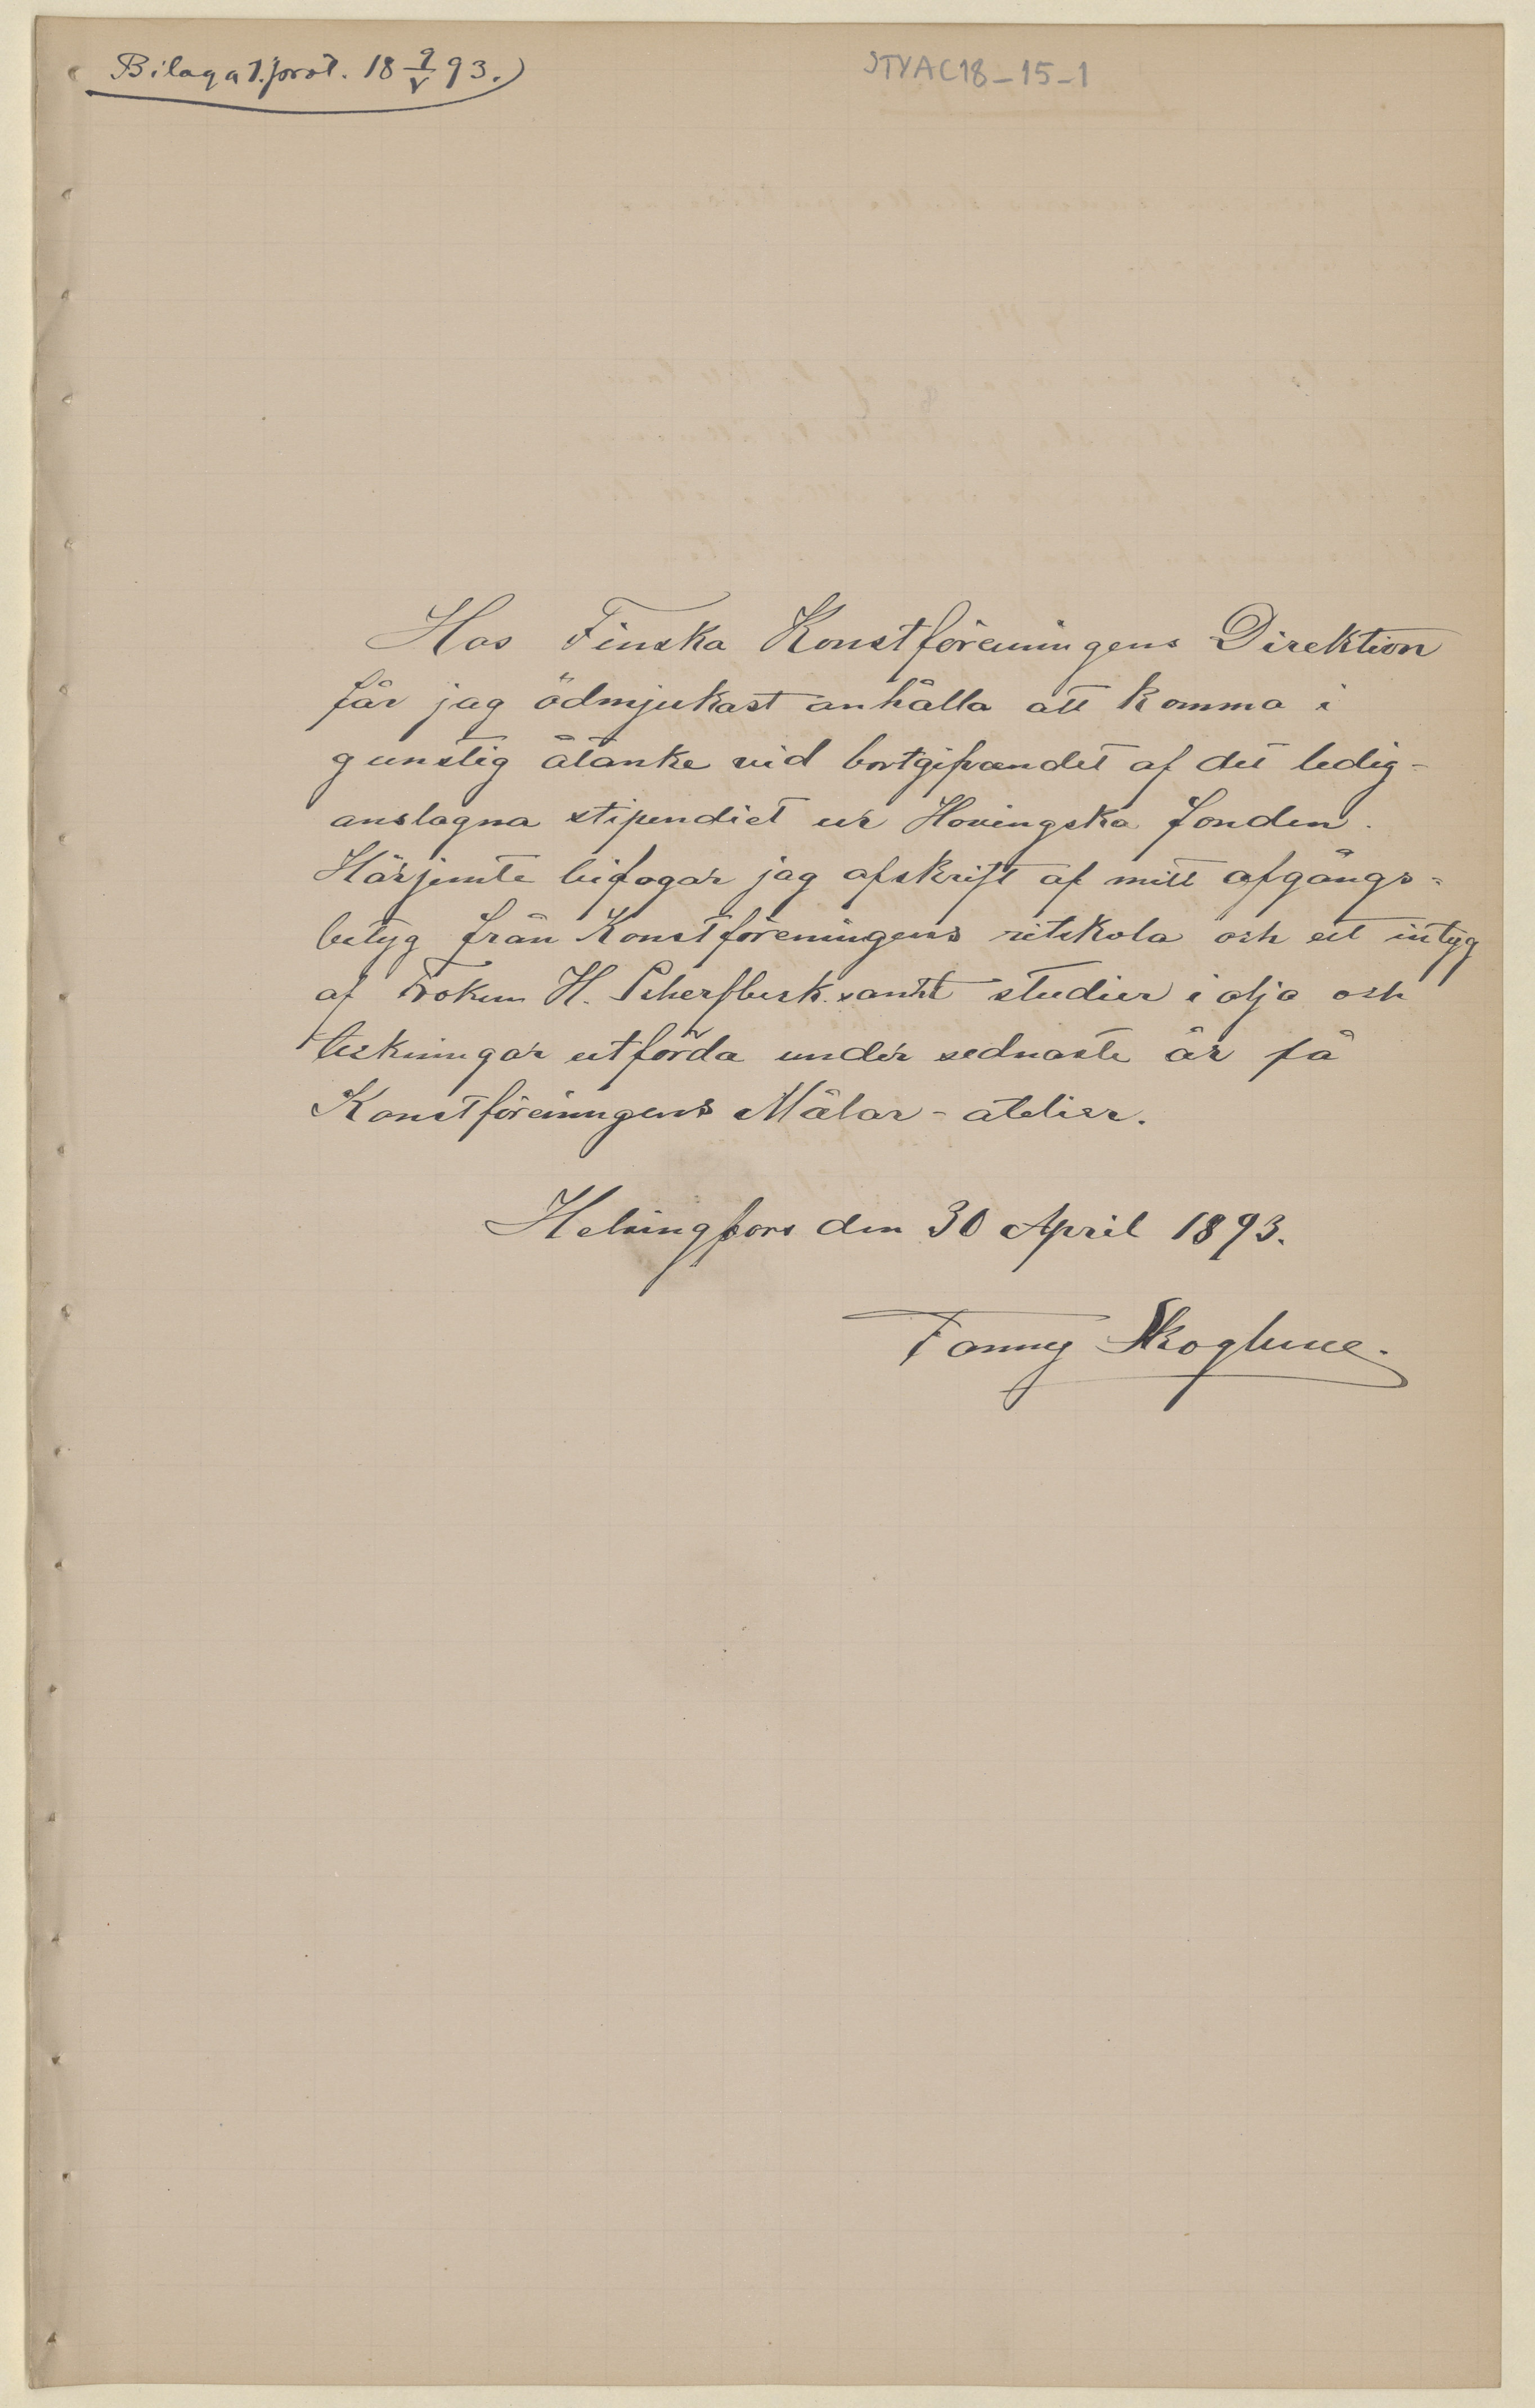 Bilaga t. prot. 18 9/V 93.)
STYAC18-15-1
Hos Finska Konstföreningens Direktion
får jag ödmjukast anhålla att komma i
gunstig åtanke vid bortgifvandet af det ledig-
anslagna stipendiet ur Hovingska fonden.
Härjemte bifogar jag afskrift af mitt afgångs-
betyg från Konstföreningens ritskola och ett intyg
af Fröken H. Scherfbeck samt studier i olja och
teckningar utförda under sednaste år på
Konstföreningens Målar-atelier.
Helsingfors den 30 April 1893.
Fanny Skoglund.